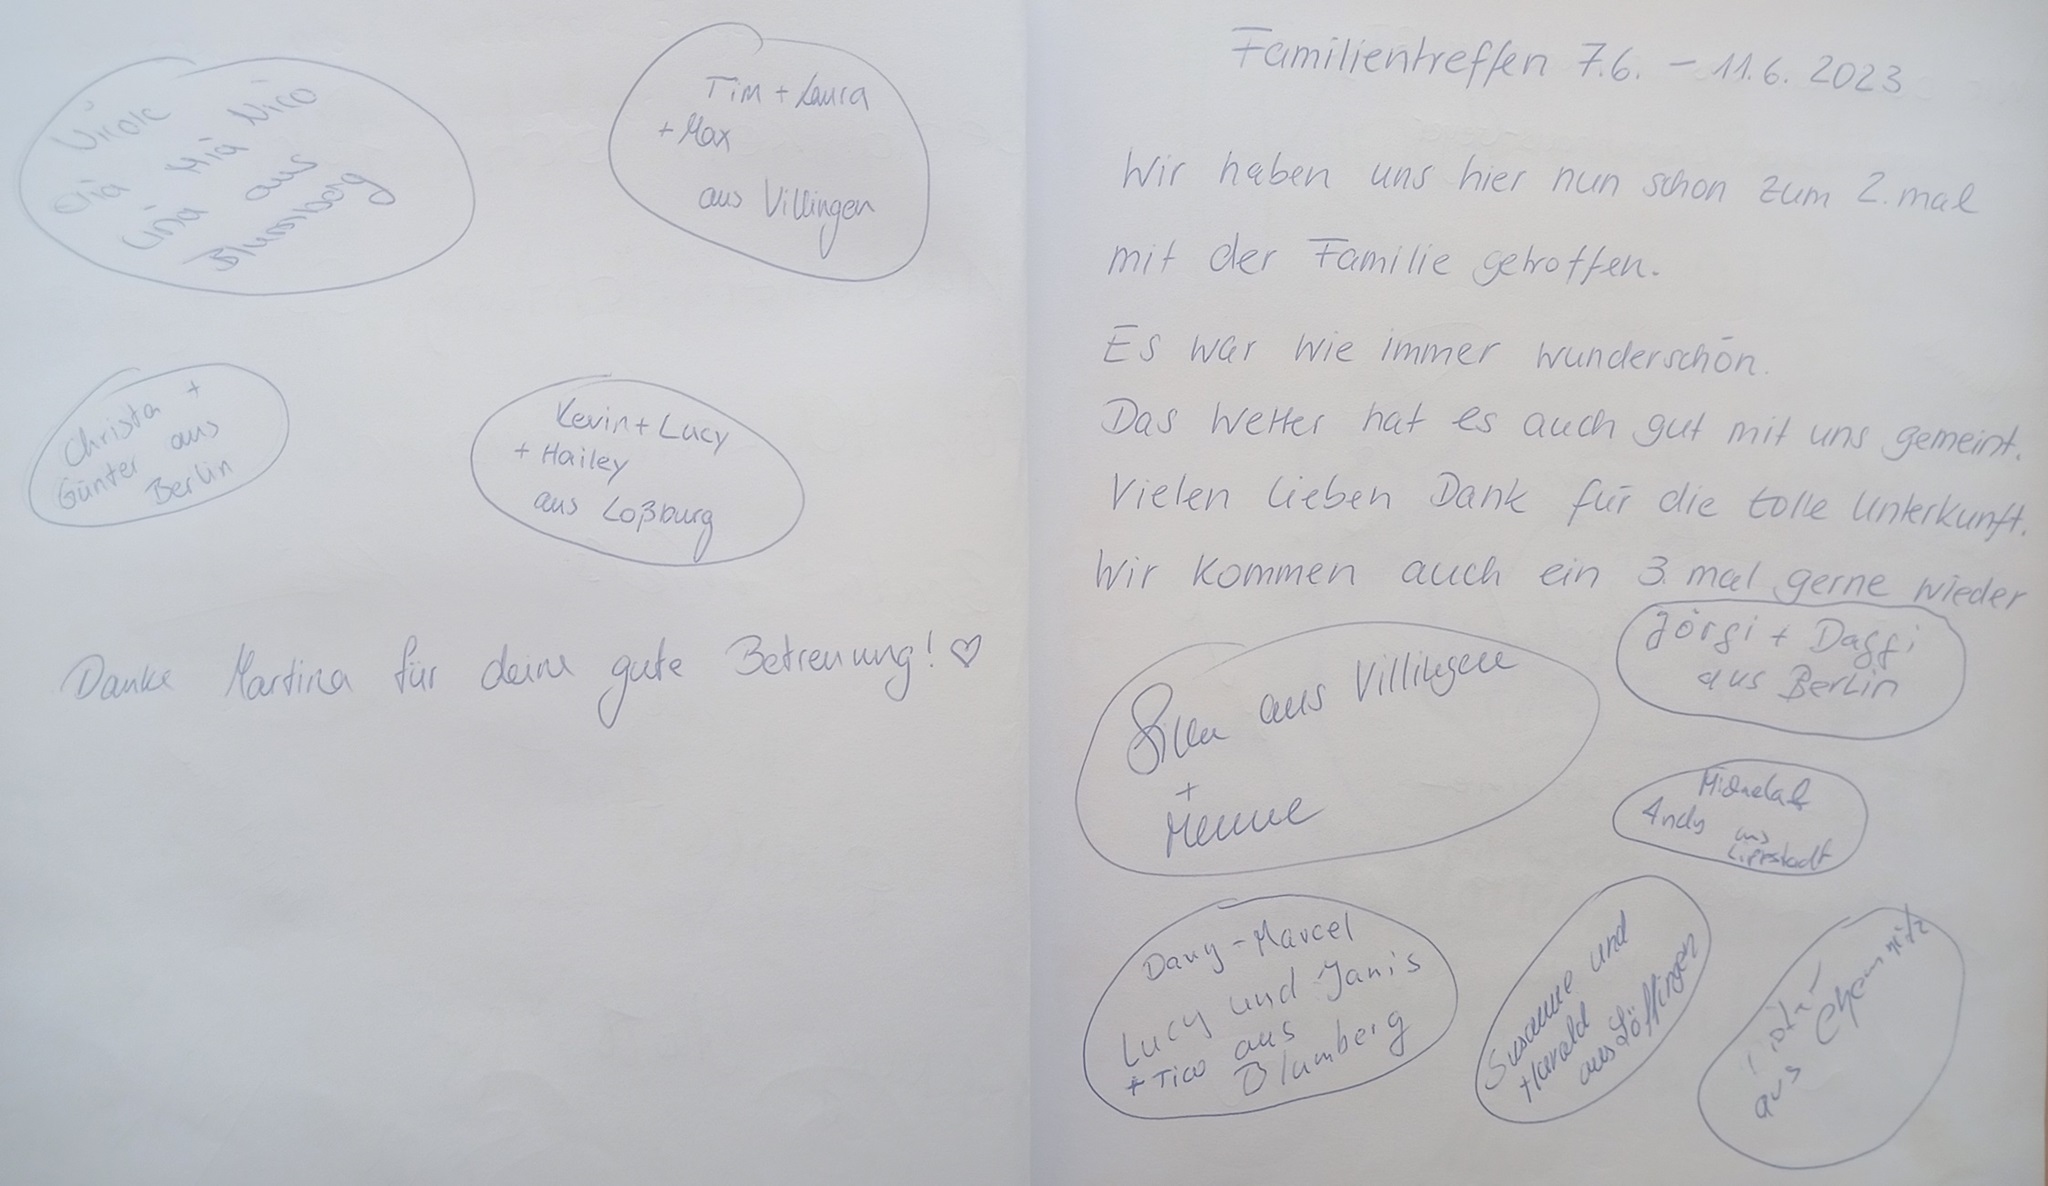 Nicole
Mia Nico
Lina aus
Blumberg
Tim + Laura
+ Max
aus Villingen
Christa +
Günter aus
Berlin
Kevin + Lucy
+ Hailey
aus Loßburg
Danke Martina für deine gute Betreuung! ♡
Familientreffen 7.6. – 11.6. 2023
Wir haben uns hier nun schon zum 2. mal
mit der Familie getroffen.
Es war wie immer wunderschön.
Das Wetter hat es auch gut mit uns gemeint.
Vielen lieben Dank für die tolle Unterkunft.
Wir kommen auch ein 3. mal gerne wieder
Jörgi + Daggi
aus Berlin
aus Villingen
+
Menne
Andy aus
Lippstadt
Dany - Marcel
Lucy und Janis
+ Tico aus
Blumberg
Susanne und
Harald
aus Löffingen
aus Chemnitz